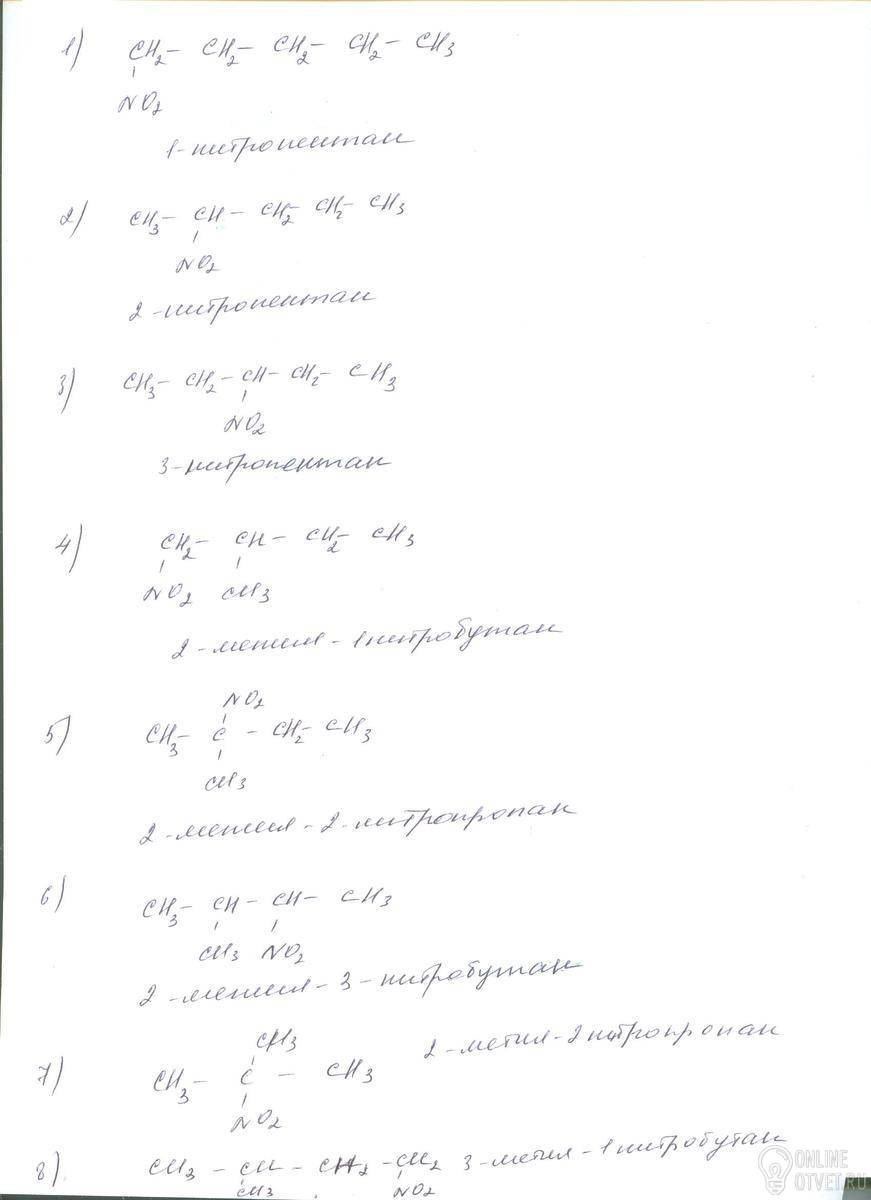 1) CH2 - CH2 - CH2 - CH2 - CH3
NO2
1-нитропентан
2) CH3 - CH - CH2 CH2 - CH3
NO2
2-нитропентан
3) CH3 - CH2 - CH - CH2 - CH3
NO2
3-нитропентан
4) CH2 - CH - CH2 - CH3
NO2 CH3
2-метил-1нитробутан
NO2
5) CH3 - C - CH2 - CH3
CH3
2-метил-2-нитропропан
6) CH3 - CH - CH - CH3
CH3 NO2
2-метил-3-нитробутан
CH3
2-метил-2нитропропан
7) CH3 - C - CH3
NO2
8) CH3 - CH - CH2 - CH2 3-метил-1нитробутан
CH3 NO2
ONLINE
OTVET.RU